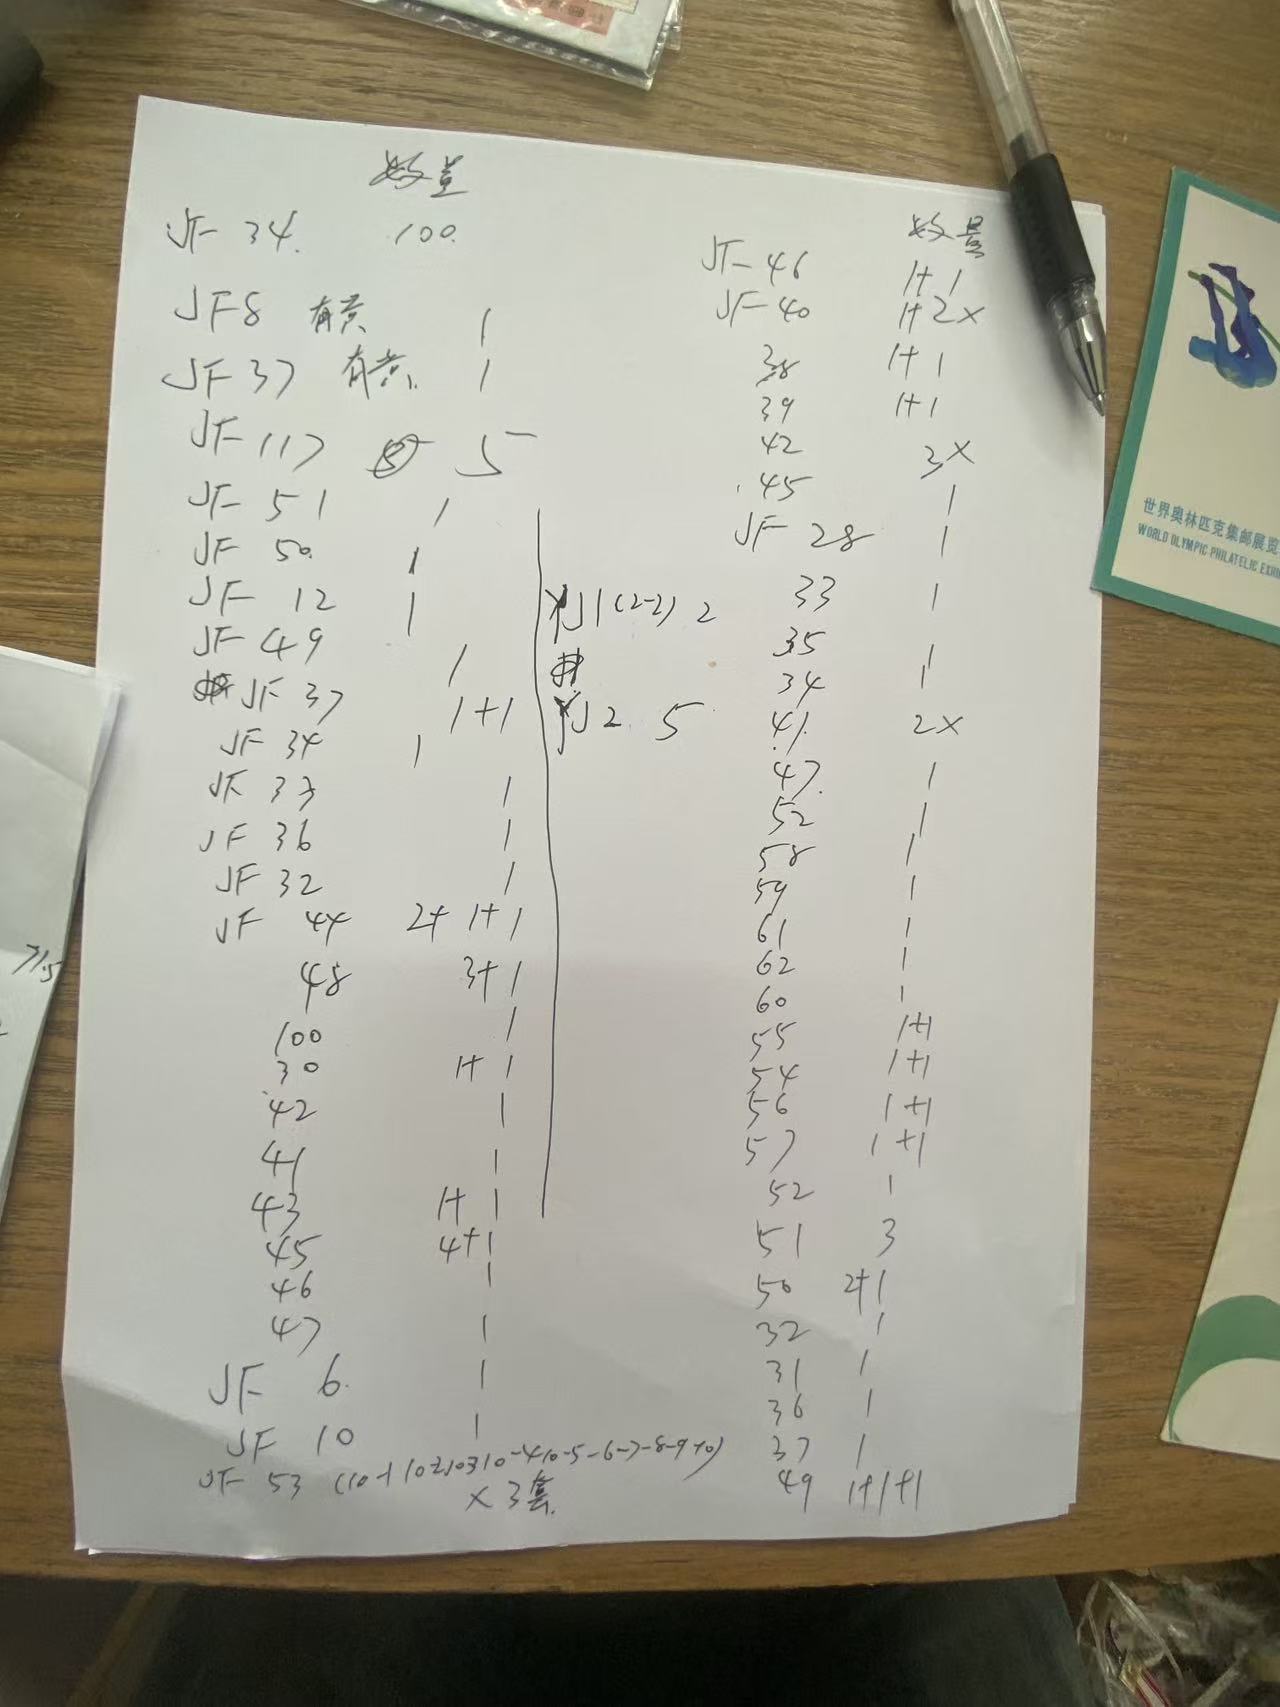 数量
JF 34. 100.
JF8 有黄 1
JF 37 有黄. 1
JF 117 5
JF 51 1
JF 50. 1
JF 12 1
JF 49 1
JF 37 1+1
JF 34 1
JF 33 1
JF 36 1
JF 32 1
JF 44 2+1+1
48 3+1
100 1
30 1+1
42 1
41 1
43 1+1
45 4+1
46 1
47 1
JF 6. 1
JF 10 1
JF 53
×3套
YJ1(2-2) 2
YJ2. 5
数量
JF 46 1+1
JF 40 1+2×
38 1+1
39 1+1
42 3×
45 1
JF 28 1
33 1
35 1
34 1
41. 2×
47. 1
52 1
58 1
59 1
61 1
62 1
60 1
55 1+1
54 1+1
56 1+1
57 1+1
52 1
51 3
50 2+1
32 1
31 1
36 1
37 1
49 1+1+1
世界奥林匹克集邮展览
WORLD OLYMPIC PHILATELIC
71.5